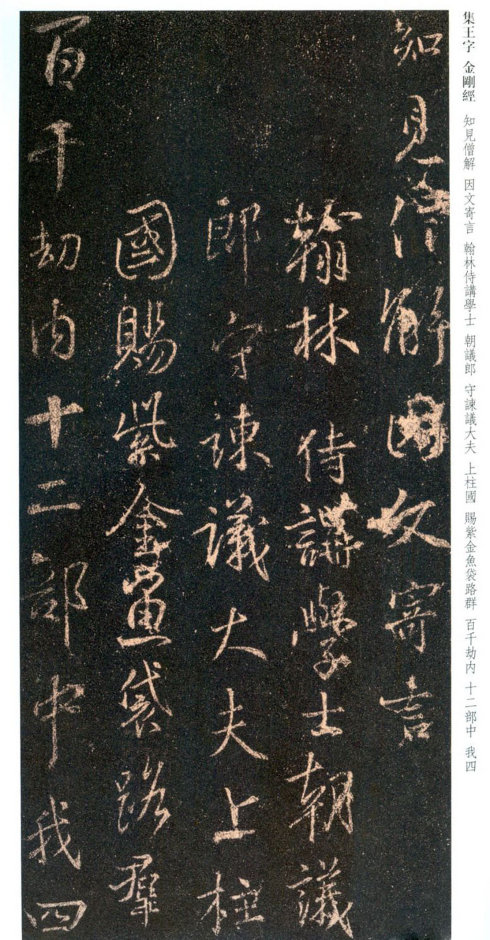 集王字 金剛經 知見僧解 因文寄言 翰林侍講學士 朝議郎 守諫議大夫 上柱國 賜紫金魚袋路群 百千劫內 十二部中 我四
知見僧解因文寄言
翰林侍講學士朝議
郎守諫議大夫上柱
國賜紫金魚袋路群
百千劫內十二部中我四